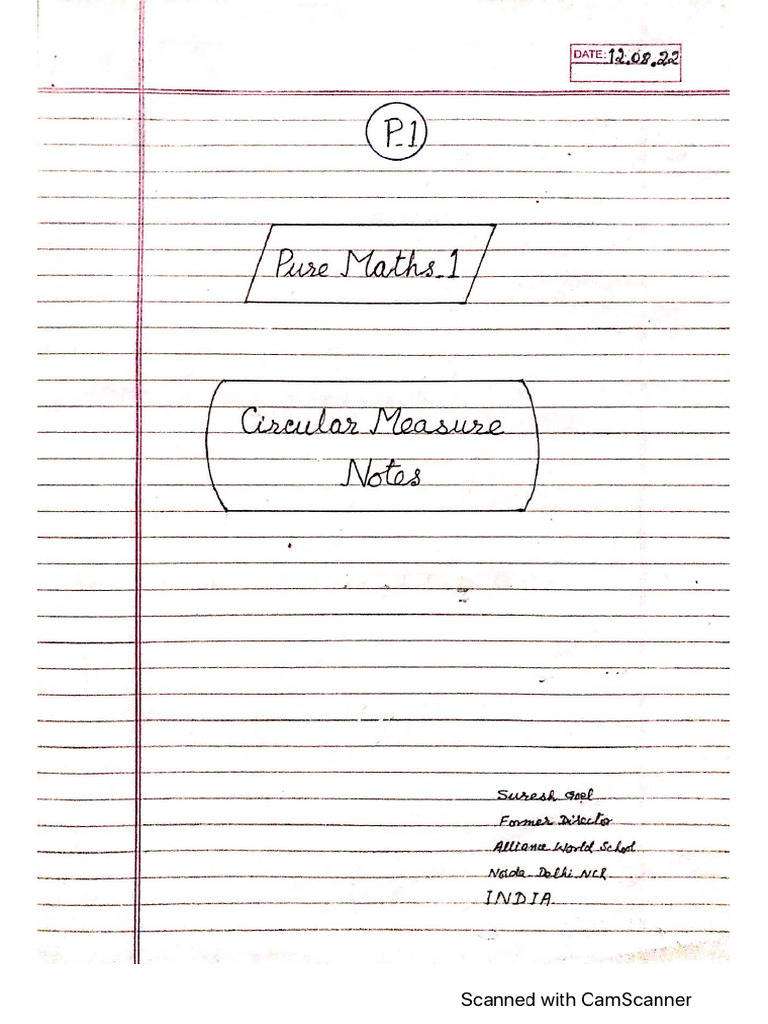 DATE: 12.08.22
P-1
Pure Maths-1
Circular Measure
Notes
Suresh Goel
Former Director
Alliance World School
Noida Delhi NCR
INDIA
Scanned with CamScanner